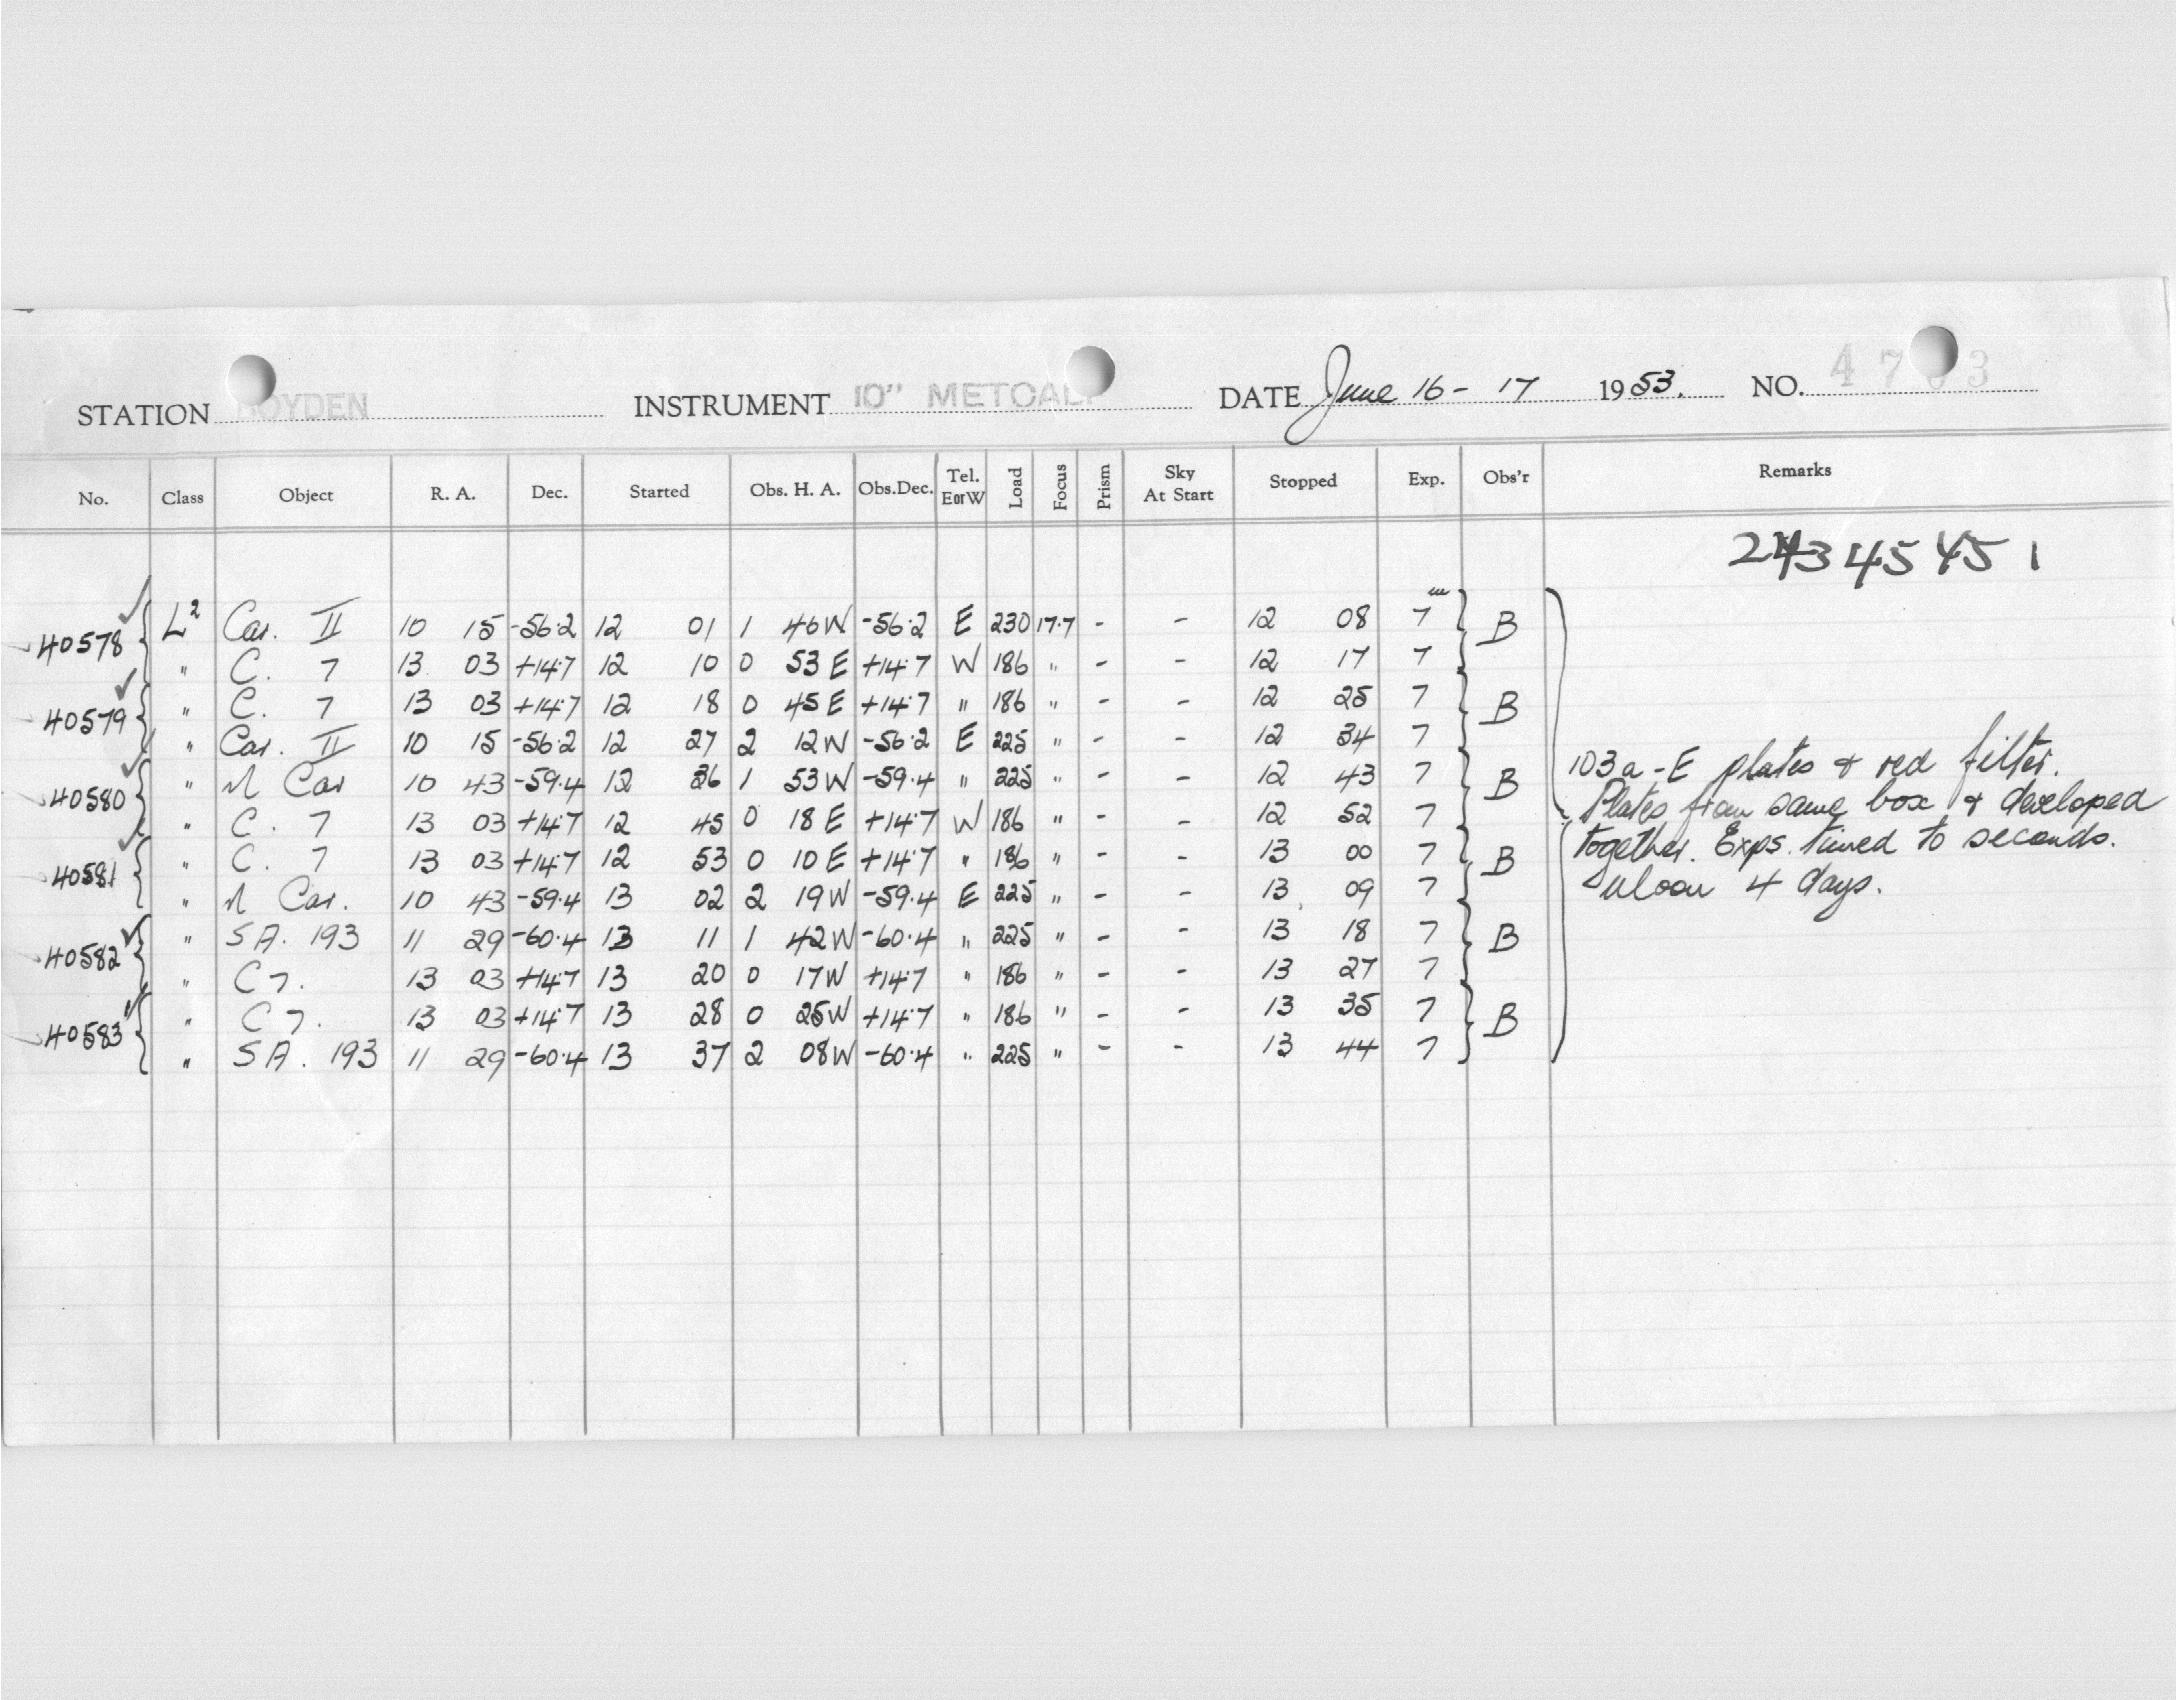 STATION BOYDEN INSTRUMENT 10" METCALF DATE June 16 - 17 1953. NO. 47 3
No. Class Object R. A. Dec. Started Obs. H. A. Obs.Dec. Tel. E or W Load Focus Prism Sky At Start Stopped Exp. Obs'r Remarks
2434545 1
40578 L² Car. II 10 15 -56.2 12 01 1 46 W -56.2 E 230 17.7 - - 12 08 7 m B
" C. 7 13 03 +14.7 12 10 0 53 E +14.7 W 186 " - - 12 17 7
40579 " C. 7 13 03 +14.7 12 18 0 45 E +14.7 " 186 " - - 12 25 7 B
" Car. II 10 15 -56.2 12 27 2 12 W -56.2 E 225 " - - 12 34 7
40580 " η Car 10 43 -59.4 12 36 1 53 W -59.4 " 225 " - - 12 43 7 B
" C. 7 13 03 +14.7 12 45 0 18 E +14.7 W 186 " - - 12 52 7
40581 " C. 7 13 03 +14.7 12 53 0 10 E +14.7 " 186 " - - 13 00 7 B
" η Car. 10 43 -59.4 13 02 2 19 W -59.4 E 225 " - - 13 09 7
40582 " S A. 193 11 29 -60.4 13 11 1 42 W -60.4 " 225 " - - 13 18 7 B
" C 7. 13 03 +14.7 13 20 0 17 W +14.7 " 186 " - - 13 27 7
40583 " C 7. 13 03 +14.7 13 28 0 25 W +14.7 " 186 " - - 13 35 7 B
" S A. 193 11 29 -60.4 13 37 2 08 W -60.4 " 225 " - - 13 44 7
103a-E plates & red filter.
Plates from same box & developed
together. Exps. timed to seconds.
Moon 4 days.